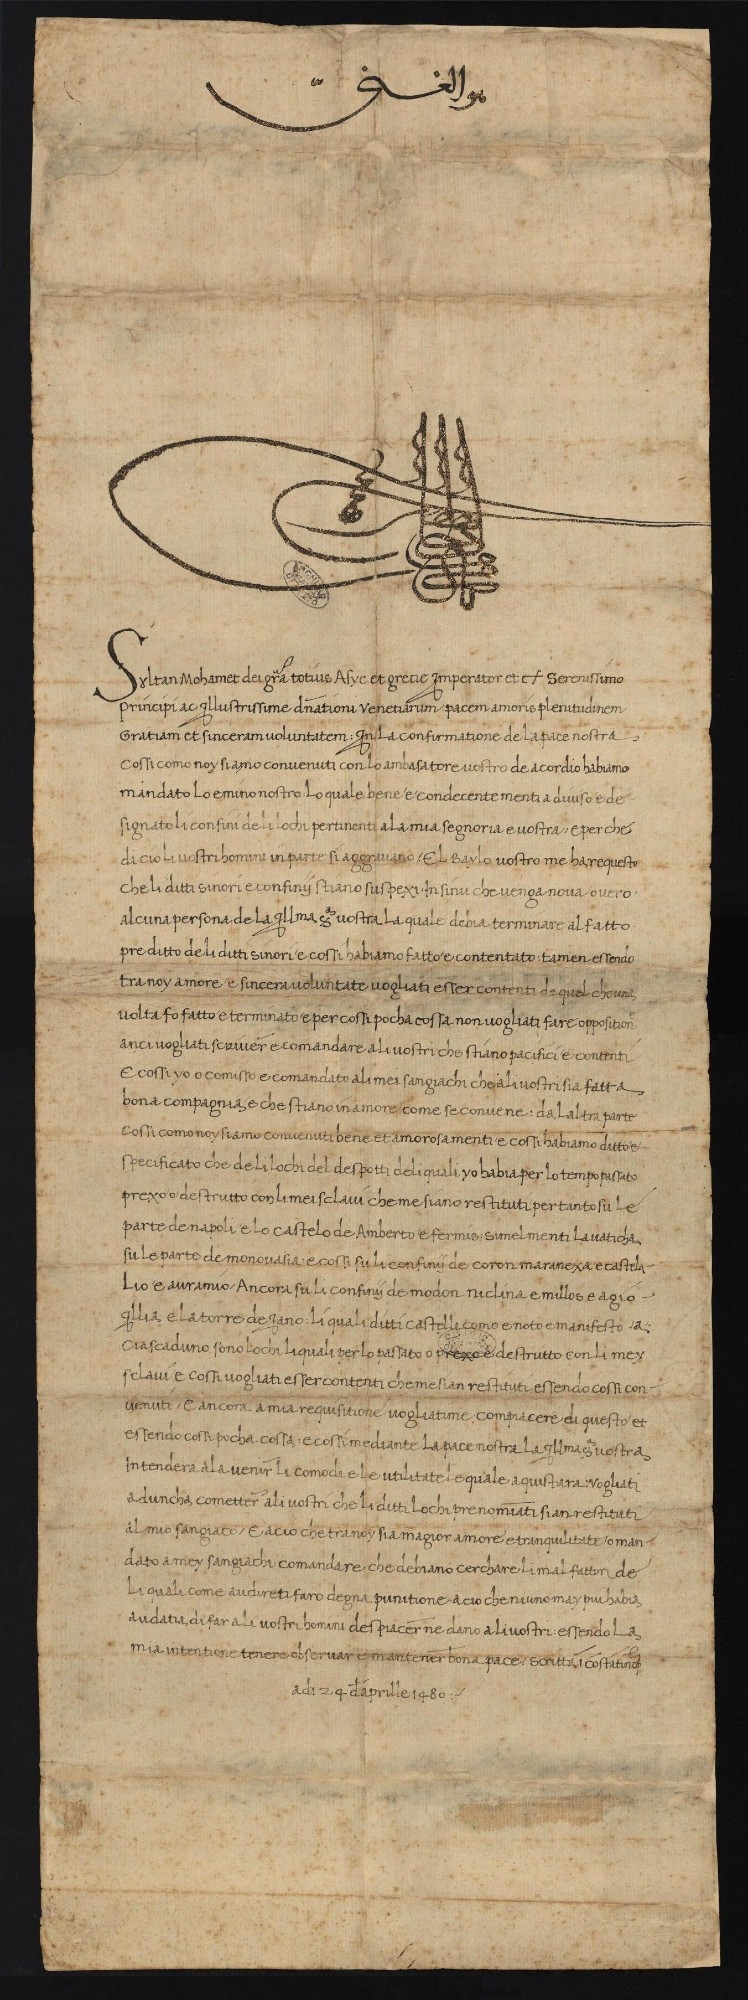 هو الغنى
Sultan Mohamet dei gr͞a totius Asye et gretie Imperator et cͭ Serenissimo
principi ac Illustrissime d͞nationi Venetiarum pacem amoris plenitudinem
Gratiam et sinceram voluntatem: In la confirmatione de la pace nostra
cossi como noy siamo convenuti con lo ambasatore vostro de acordio habiamo
mandato lo emino nostro lo quale bene e condecente menti a diviso e de
signato li confini de li lochi pertinenti a la mia segnoria e vostra / e per che
di cio li vostri homini in parte si aggravano / El Baylo vostro me ha requesto
che li ditti sinori e confinij stiano suspexi In sinu che venga nova overo
alcuna persona de la Illma S͞a vostra la quale debia terminare al fatto
pre ditto de li ditti sinori e cossi habiamo fatto e contentato: tamen essendo
tra noy amore e sincera voluntate vogliati esser contenti de quel che una
volta fo fatto e terminato e per cossi pocha cossa non vogliati fare opposition
anci vogliati scriver e comandare a li vostri che stiano pacifici e contenti
E cossi yo o comisso e comandato a li mei sangiachi che a li vostri sia fatta
bona compagnia e che stiano in amore come se convene: da l altra parte
cossi como noy siamo convenuti bene et amorosamenti e cossi habiamo ditto e
specificato che de li lochi del despotti de li quali yo habia per lo tempo passato
prexo o destrutto con li mei sclavi che me siano restituti per tanto su le
parte de napoli e lo castelo de Amberto e fermis: simelmenti la vaticha
su le parte de monovasia: e cossi su li confinij de coron maranexa e castela
lio e avramio / Ancora su li confinij de modon niclina e millos e agio
Illia e la torre de Jano: li quali ditti castelli como e noto e manifesto a
ciascaduno sono lochi li quali per lo passato o prexo e destrutto con li mey
sclavi e cossi vogliati esser contenti che me sian restituti essendo cossi con
venuti / E ancora a mia requisitione vogliatime compiacere di questo et
essendo cossi pocha cossa: e cossi mediante la pace nostra la Illma S͞a vostra
Intendera a la venir li comodi e le utilitate le quale aquistara: Vogliati
aduncha cometter a li vostri che li ditti lochi prenominati sian restituti
al mio sangiaco / E acio che tra noy sia magior amore e tranquilitate / o man
dato a mey sangiachi comandare che debiano cerchare li mal fattori de
li quali come audireti faro degna punitione acio che niuno may piu habia
audatia di far a li vostri homini despiacer ne dano a li vostri: essendo la
mia intentione tenere observar e mantener bona pace / Scritta ī costatinoͫ
a di 24 d' aprille 1480